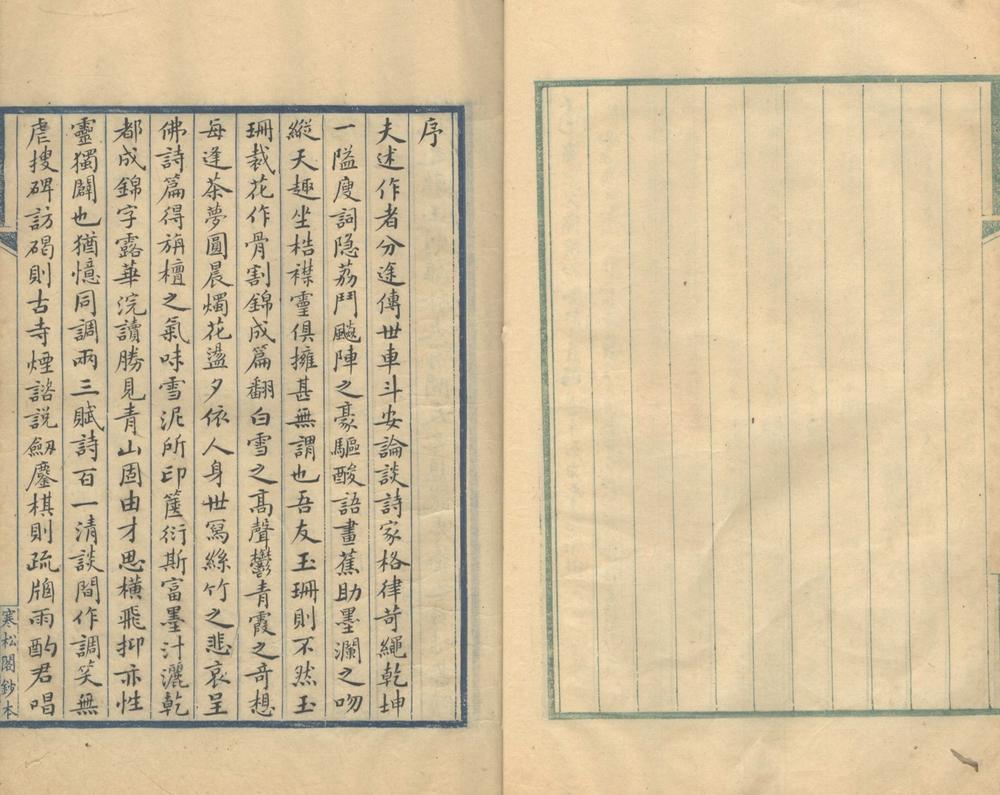 序
夫述作者分途傳世車斗安論談詩家格律苛繩乾坤
一隘廋詞隐荔鬥飈陣之豪驅酸語畫蕉助墨瀾之吻
縱天趣坐梏襟靈俱擁甚無謂也吾友玉珊則不然玉
珊裁花作骨割錦成篇翻白雪之高聲鬱青霞之奇想
每逢茶夢圓晨燭花盪夕依人身世寫絲竹之悲哀呈
佛詩篇得旃檀之氣味雪泥所印篋衍斯富墨汁灑乾
都成錦字露華浣讀勝見青山固由才思橫飛抑亦性
靈獨闢也猶憶同調兩三賦詩百一清談間作調笑無
虐搜碑訪碣則古寺煙諮說劔鏖棋則疏牕雨酌君唱
寒松閣鈔本